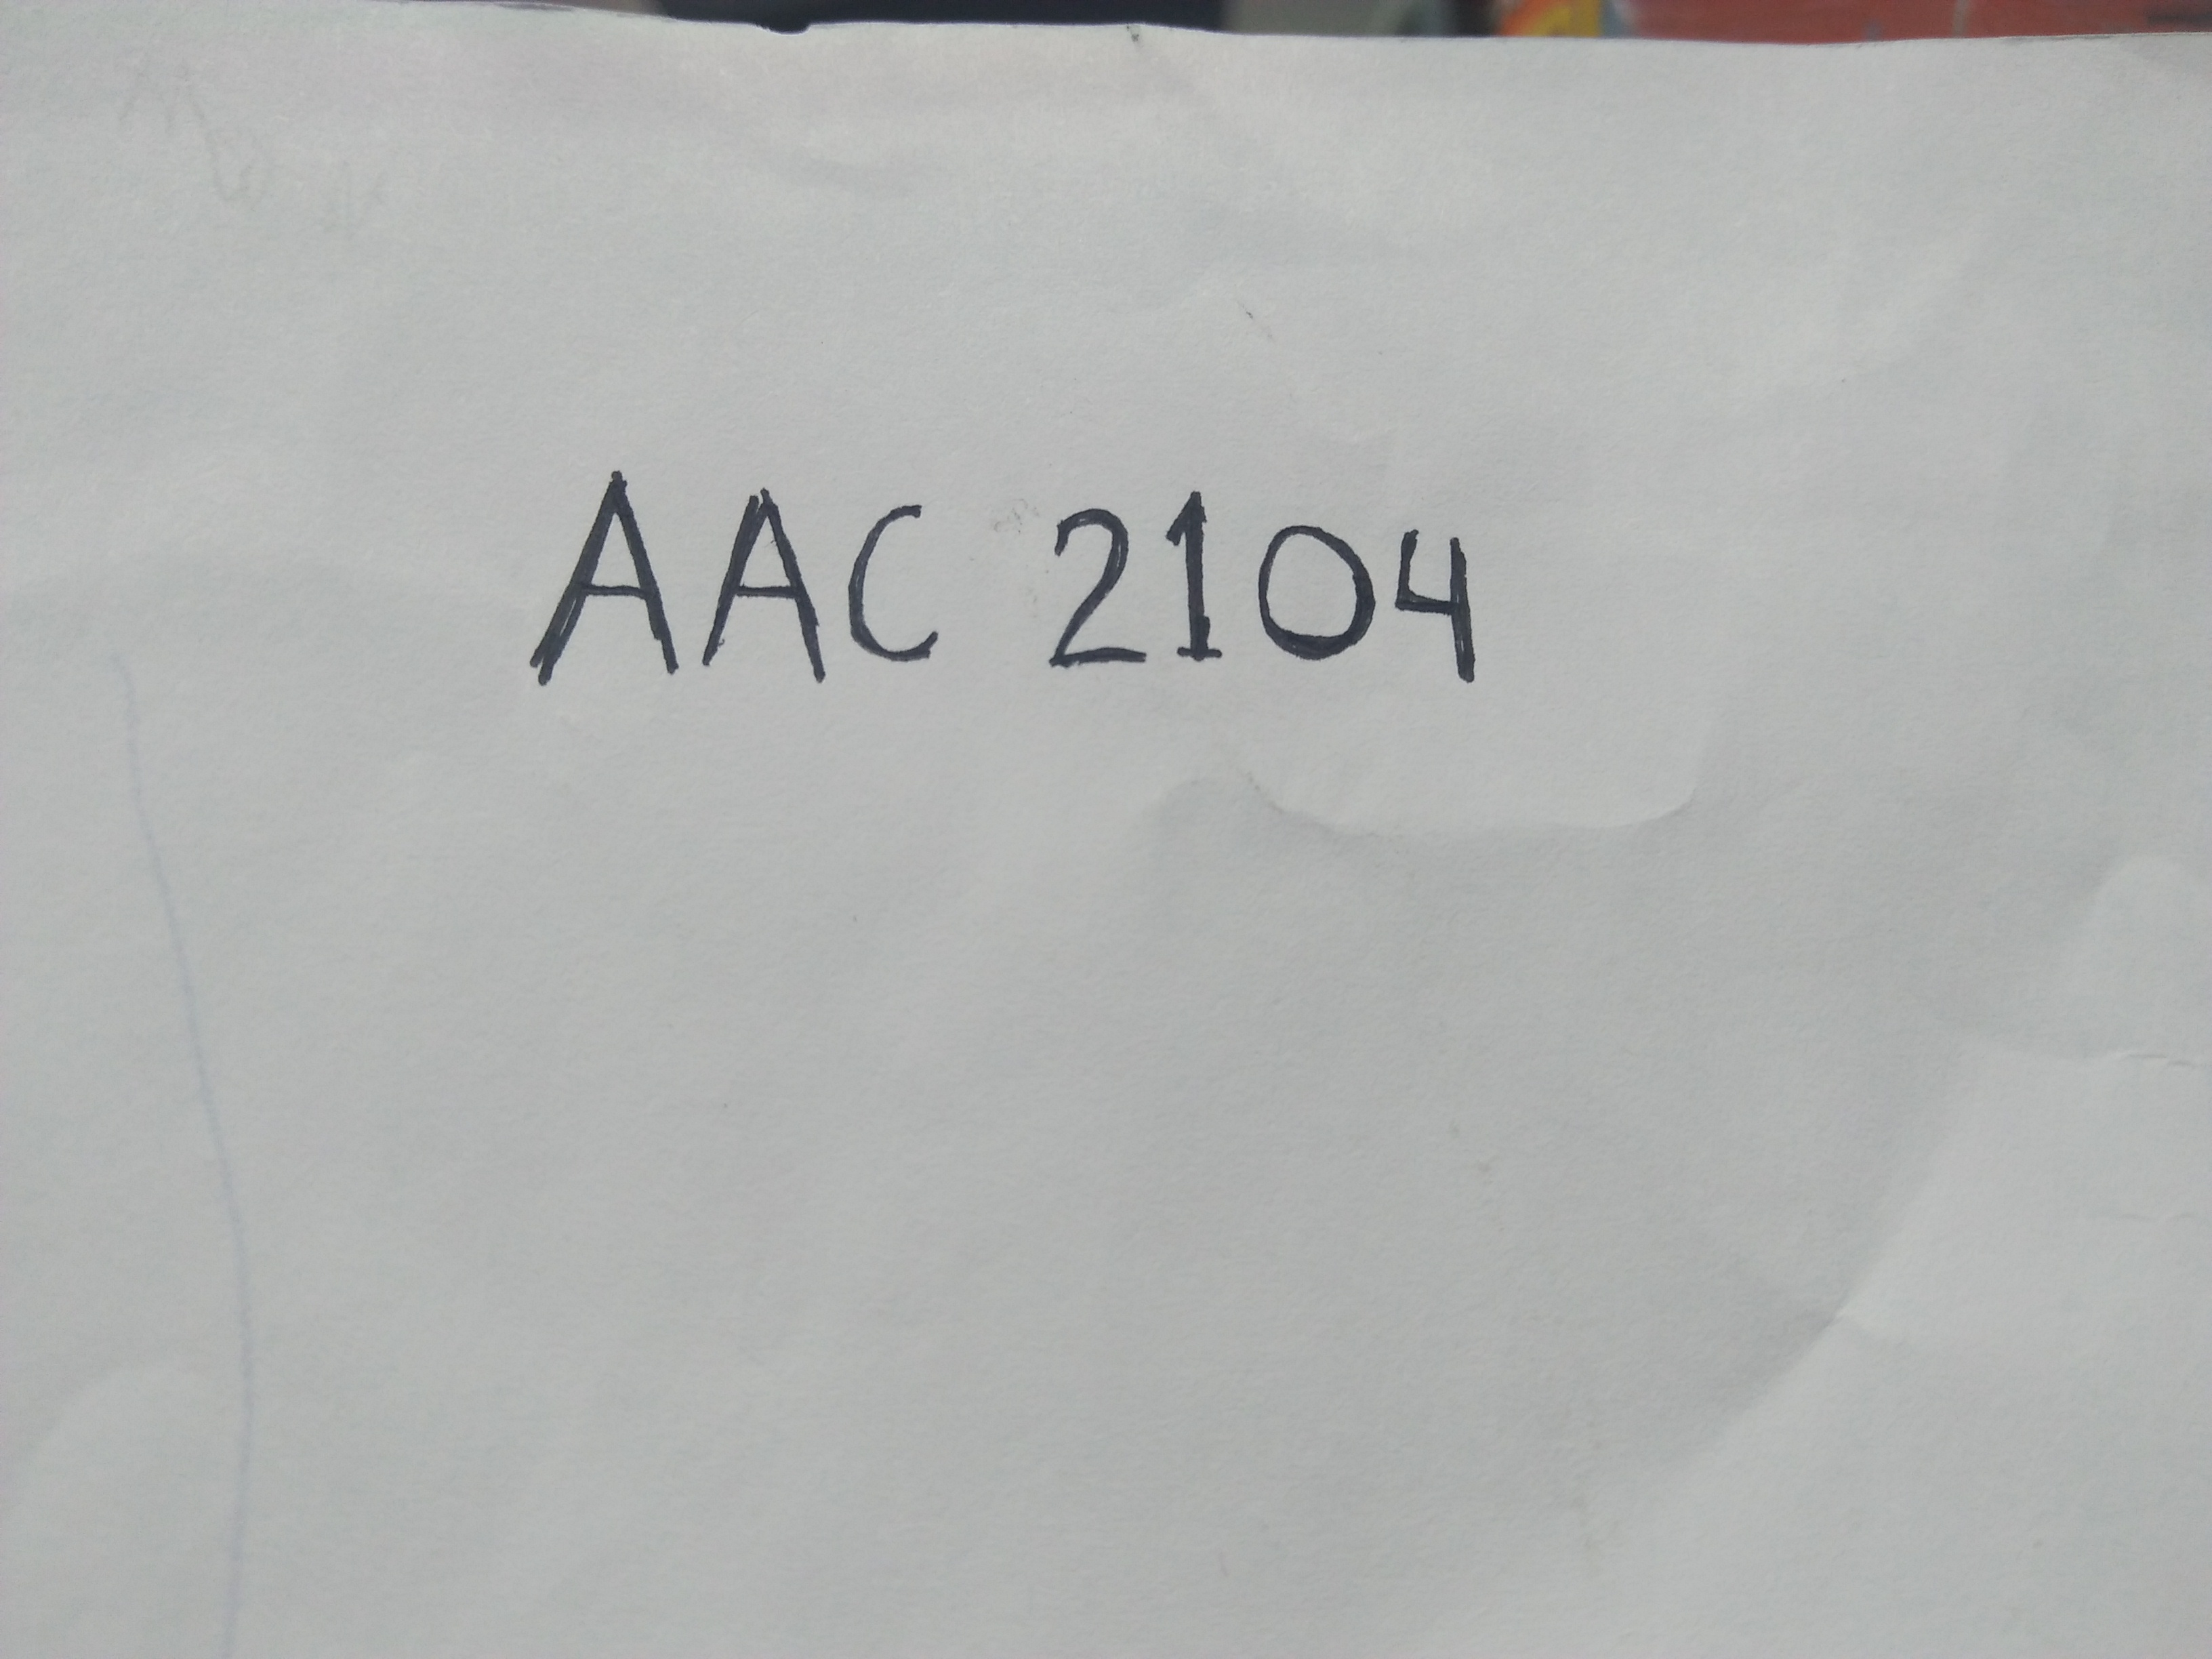 AAC 2104